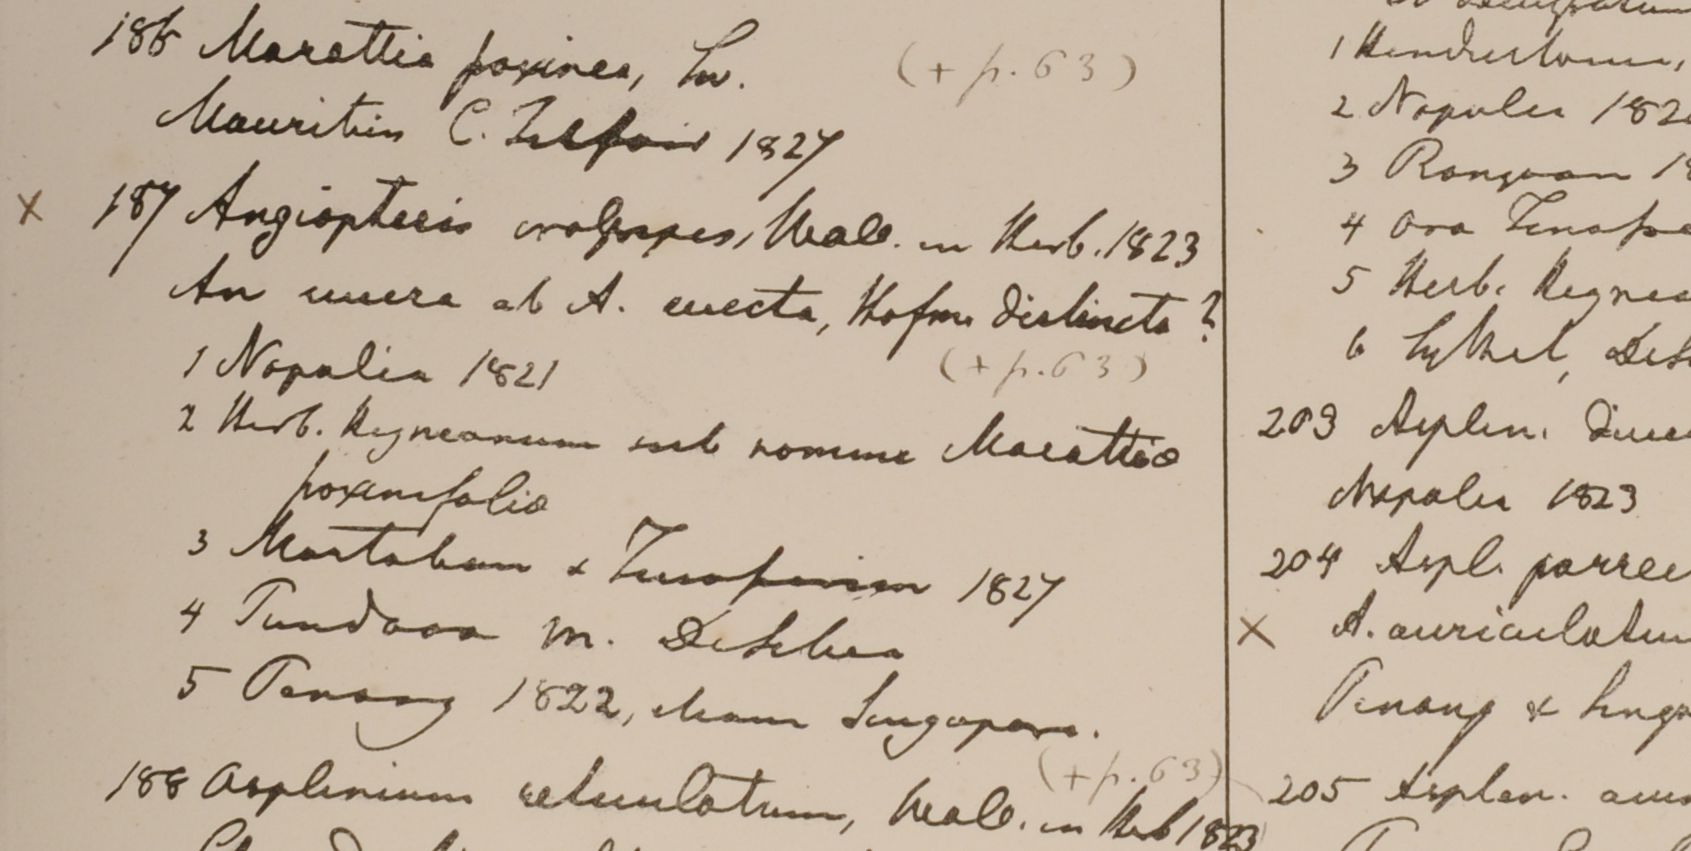 186 Marattia fraxinea, Sw. (+ p. 63)
Mauritius C. Telfair 1827
x 187 Angiopteris crassipes, Wall. in Herb. 1823
An vera ab A. evecta, Hofm. distincta?
1 Napalia 1821 (+ p. 63)
2 Herb. Heyneanum sub nomine Marattia
fraxinifolia
3 Martaban & Tenasserim 1827
4 Pundooa M. DeSilva
5 Penang 1822, etiam Singapore.
(+ p. 63)
188 Asplenium reticulatum, Wall. in Herb 1823
1 Hindustania,
2 Napalia 182
3 Rangoon 18
4 Ora Tenass
5 Herb. Heynea
6 Sylhet, DeS
203 Asplen.
Napalia 1823
204 Aspl. porrec
x A. auriculatum
Penang & Singa
205 Asplen.